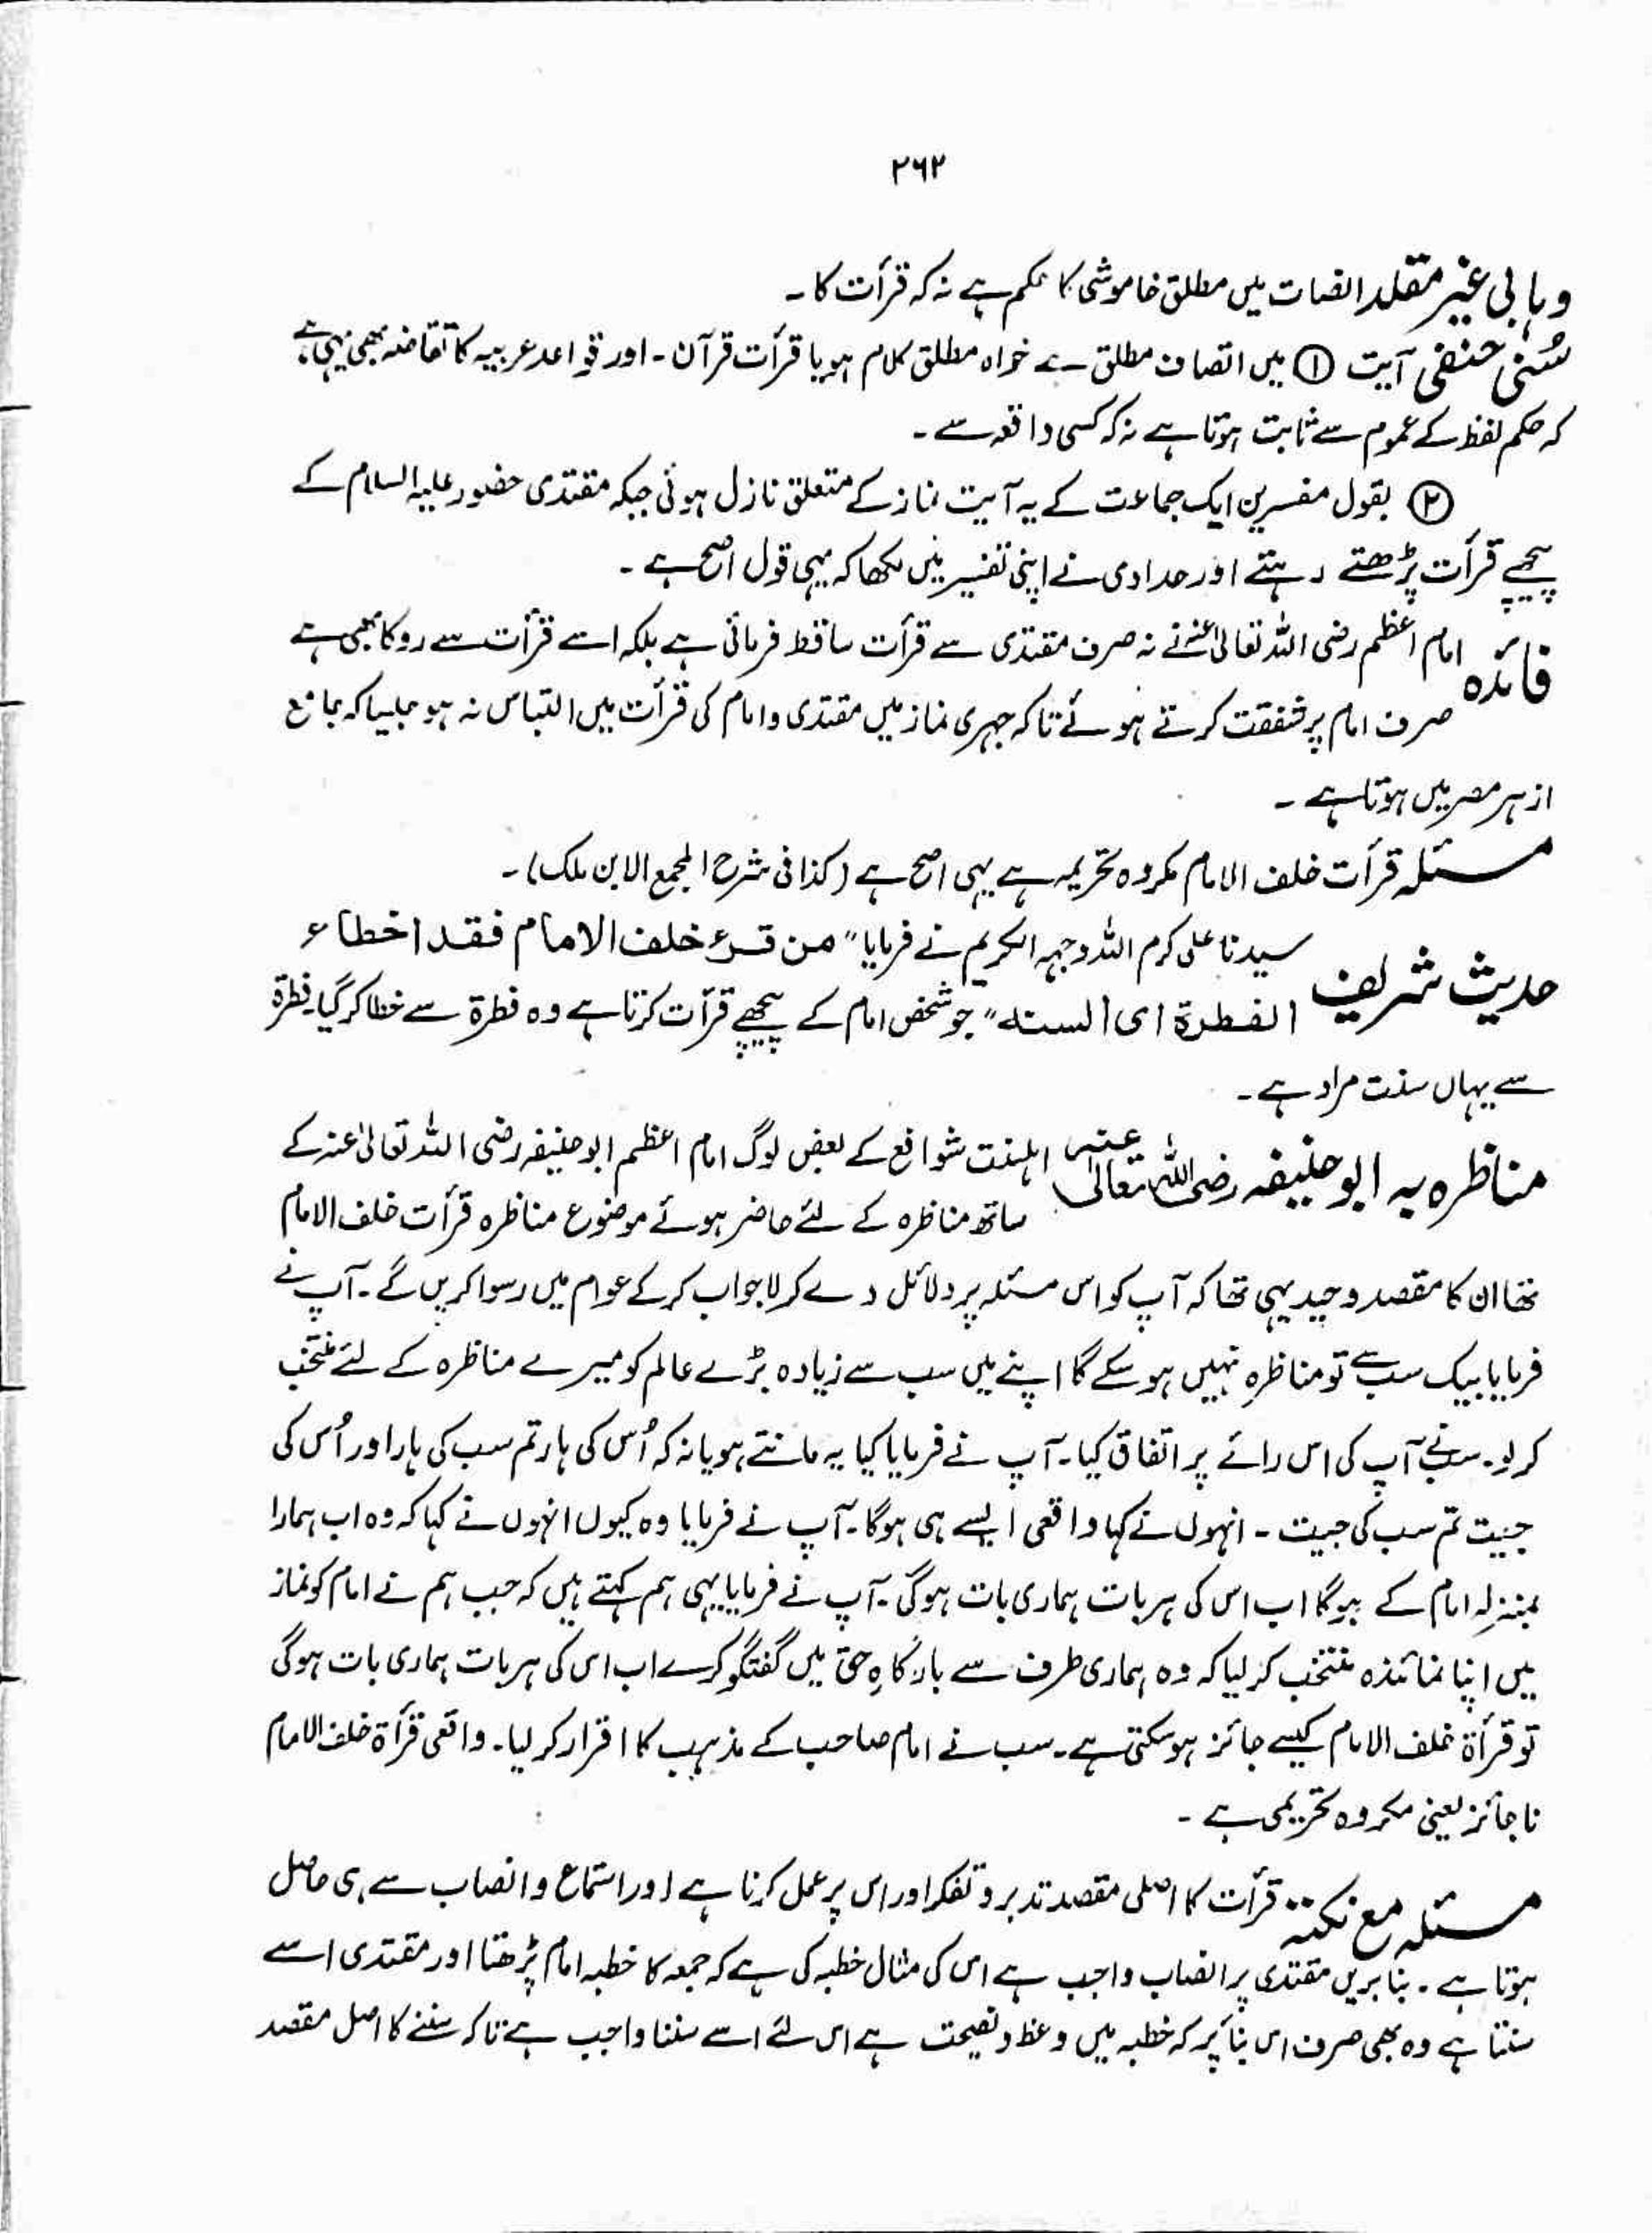 ۲۶۲
وہابی غیر مقلد انصات میں مطلق خاموشی کا حکم ہے نہ کہ قرأت کا ۔
سُنی حنفی آیت ① میں انصات مطلق ہے خواہ مطلق کلام ہو یا قرأت قرآن ۔ اور قواعد عربیہ کا تقاضہ بھی یہی ہے
کہ حکم لفظ کے عموم سے ثابت ہوتا ہے نہ کہ کسی واقعہ سے ۔
② بقول مفسرین ایک جماعت کے یہ آیت نماز کے متعلق نازل ہوئی جبکہ مقتدی حضور علیہ السلام کے
پیچھے قرأت پڑھتے رہتے اور حدادی نے اپنی تفسیر میں لکھا کہ یہی قول اصح ہے ۔
فائدہ امام اعظم رضی اللہ تعالیٰ عنہ نے نہ صرف مقتدی سے قرأت ساقط فرمائی ہے بلکہ اسے قرأت سے روکا بھی ہے
صرف امام پر شفقت کرتے ہوئے تاکہ جہری نماز میں مقتدی و امام کی قرأت میں التباس نہ ہو جیسا کہ جامع
ازہر مصر میں ہوتا ہے ۔
مسئلہ قرأت خلف الامام مکروہ تحریمہ ہے یہی اصح ہے (کذا فی شرح المجمع الابن ملک) ۔
حدیث شریف سیدنا علی کرم اللہ وجہہ الکریم نے فرمایا " من قرء خلف الامام فقد اخطاء
الفطرۃ ای السنتہ" جو شخص امام کے پیچھے قرأت کرتا ہے وہ فطرۃ سے خطا کر گیا ۔ فطرۃ
سے یہاں سنت مراد ہے ۔
مناظرہ بہ ابوحنیفہ رضی اللہ تعالیٰ عنہ اہلسنت شوافع کے بعض لوگ امام اعظم ابوحنیفہ رضی اللہ تعالیٰ عنہ کے
ساتھ مناظرہ کے لئے حاضر ہوئے موضوع مناظرہ قرأت خلف الامام
تھا ان کا مقصد وحید یہی تھا کہ آپ کو اس مسئلہ پر دلائل دے کر لاجواب کر کے عوام میں رسوا کریں گے ۔ آپ نے
فرمایا بیک سب سے تو مناظرہ نہیں ہو سکے گا اپنے میں سب سے زیادہ بڑے عالم کو میرے مناظرہ کے لئے منتخب
کر لو ۔ سب نے آپ کی اس رائے پر اتفاق کیا ۔ آپ نے فرمایا کیا یہ مانتے ہو یا نہ کہ اُس کی ہار تم سب کی ہار اور اُس کی
جیت تم سب کی جیت ۔ انہوں نے کہا واقعی ایسے ہی ہوگا ۔ آپ نے فرمایا وہ کیوں انہوں نے کہا کہ وہ اب ہمارا
بمنزلہ امام کے ہوگا اب اس کی ہر بات ہماری بات ہوگی ۔ آپ نے فرمایا یہی ہم کہتے ہیں کہ جب ہم نے امام کو نماز
میں اپنا نمائندہ منتخب کر لیا کہ وہ ہماری طرف سے بارگاہِ حق میں گفتگو کرے اب اس کی ہر بات ہماری بات ہوگی
تو قرأۃ خلف الامام کیسے جائز ہو سکتی ہے ۔ سب نے امام صاحب کے مذہب کا اقرار کر لیا ۔ واقعی قرأۃ خلف الامام
ناجائز یعنی مکروہ تحریمی ہے ۔
مسئلہ مع نکتہ قرأت کا اصلی مقصد تدبر و تفکر اور اس پر عمل کرنا ہے اور استماع و انصاب سے ہی حاصل
ہوتا ہے ۔ بنا بریں مقتدی پر انصاب واجب ہے اس کی مثال خطبہ کی ہے کہ جمعہ کا خطبہ امام پڑھتا اور مقتدی اسے
سنتا ہے وہ بھی صرف اس بنأ پر کہ خطبہ میں وعظ و نصیحت ہے اس لئے اسے سننا واجب ہے تاکہ سننے کا اصل مقصد